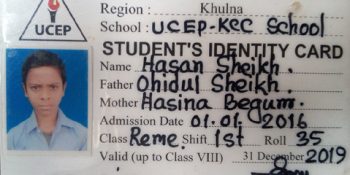 UCEP
Region : Khulna
School : UCEP-KCC School
STUDENT'S IDENTITY CARD
Name Hasan Sheikh.
Father Ohidul Sheikh.
Mother Hasina Begum.
Admission Date 01.01.2016
Class Reme. Shift 1st Roll 35
Valid (up to Class VIII) 31 December 2019